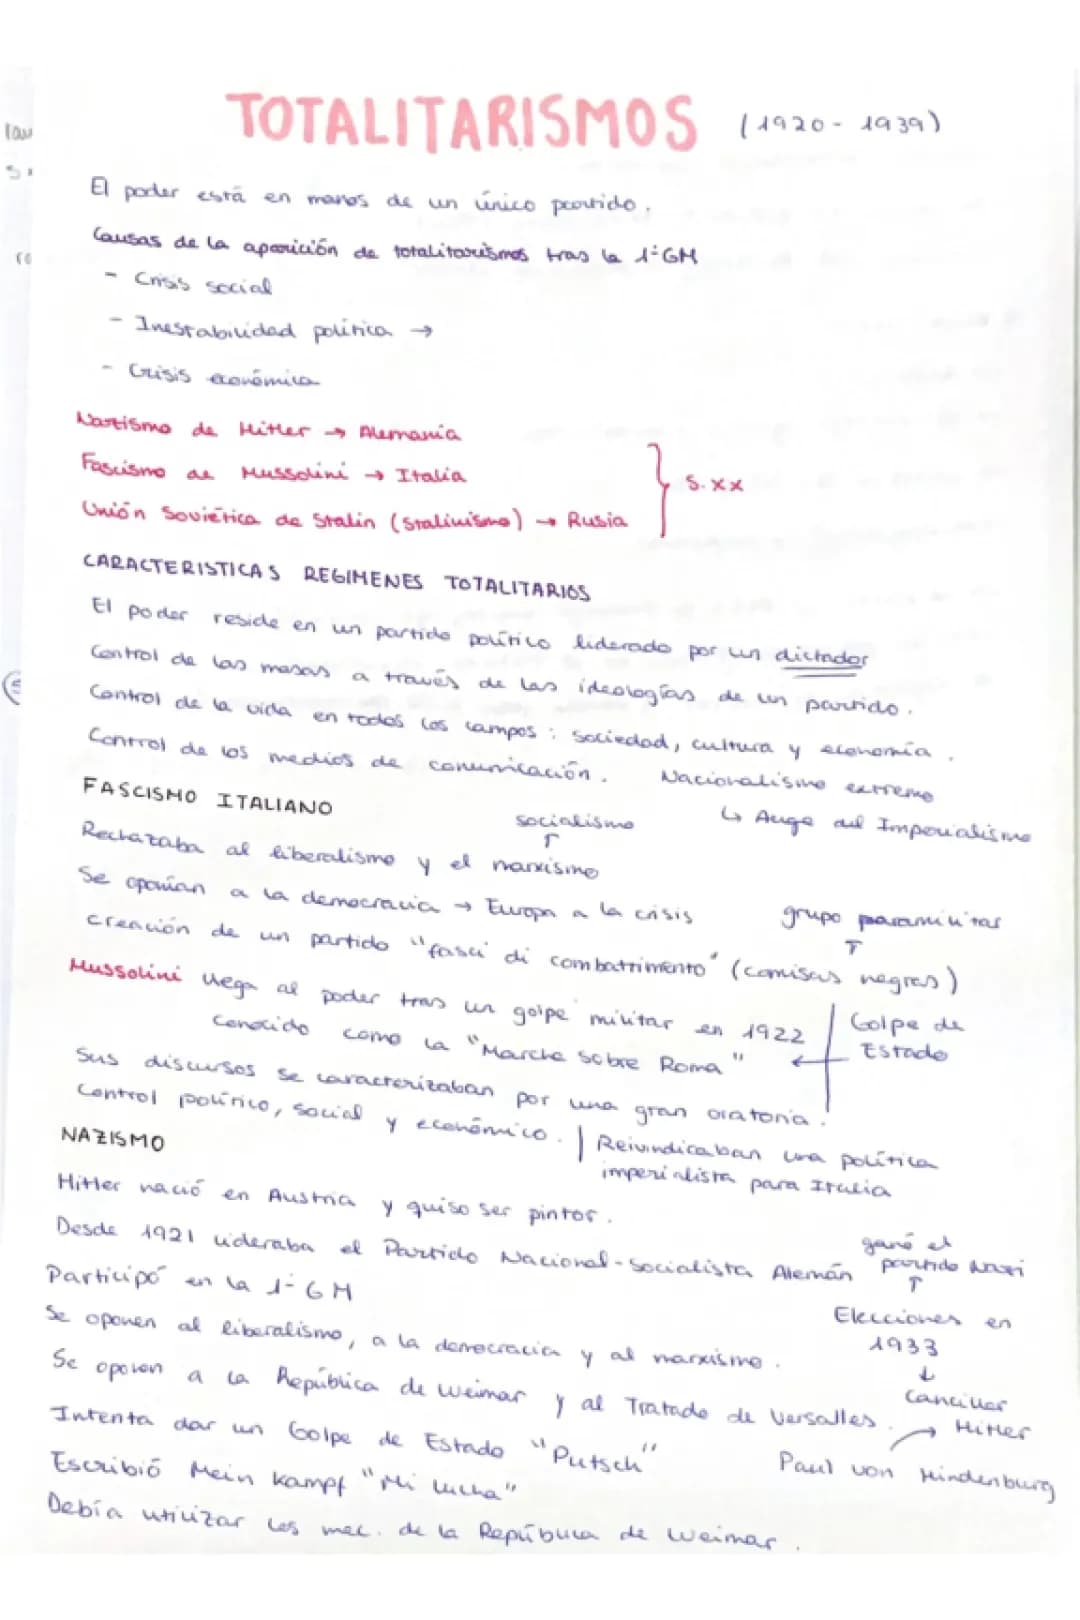 TOTALITARISMOS (1920 - 1939)
El poder está en manos de un único partido.
Causas de la aparición de totalitarismos tras la 1ªGM
- Crisis social
- Inestabilidad política →
- Crisis económica
Nazismo de Hitler → Alemania
Fascismo de Mussolini → Italia
S. XX
Unión Soviética de Stalin (Stalinismo) → Rusia
CARACTERISTICAS REGIMENES TOTALITARIOS
El poder reside en un partido político liderado por un dictador
Control de las masas a través de las ideologías de un partido.
Control de la vida en todos los campos: sociedad, cultura y economía.
Control de los medios de comunicación. Nacionalismo extremo
↳ Auge del Imperialismo
FASCISMO ITALIANO
socialismo
↑
Rechazaba al liberalismo y el marxismo
Se oponían a la democracia → Europa a la crisis
grupo paramilitar
↑
Creación de un partido "fasci di combattimento" (camisas negras)
Mussolini llega al poder tras un golpe militar en 1922
Golpe de
Estado
Conocido como la "Marcha sobre Roma" ←
Sus discursos se caracterizaban por una gran oratoria.
Control político, social y económico. | Reivindicaban una política
imperialista para Italia
NAZISMO
Hitler nació en Austria y quiso ser pintor.
Desde 1921 lideraba el Partido Nacional-Socialista Alemán
ganó el
partido Nazi
↑
Elecciones en
1933
↓
Canciller
Hitler
Participó en la 1ªGM
Se oponen al liberalismo, a la democracia y al marxismo.
Se oponen a la República de Weimar y al Tratado de Versalles.
Intenta dar un Golpe de Estado "Putsch"
Paul von Hindenburg →
Escribió Mein Kampf "Mi lucha"
Debía utilizar los mec. de la República de Weimar.